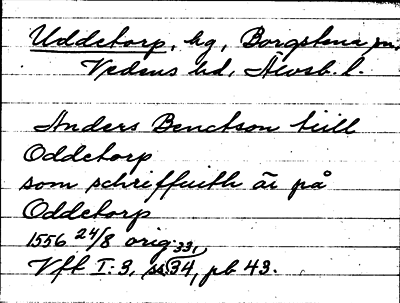 Uddetorp, hg, Borgstena sn,
Vedens hd, Älvsb. l.
Anders Benctson tiill
Oddetorp
som schriffuith är på
Oddetorp
1556 24/8 orig. 33,
Vfl I:3, ss 34, pb 43.